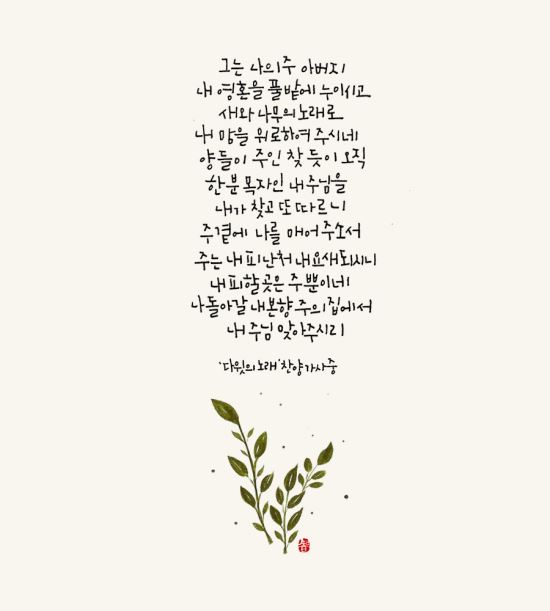 그는 나의 주 아버지
내 영혼을 풀밭에 누이시고
새와 나무의 노래로
내 맘을 위로하여 주시네
양들이 주인 찾듯이 오직
한분 목자인 내 주님을
내가 찾고 또 따르니
주 곁에 나를 매어 주소서
주는 내 피난처 내 요새 되시니
내 피할 곳은 주 뿐이네
나 돌아갈 내 본향 주의 집에서
내 주님 맞아주시리
'다윗의 노래' 찬양 가사 중